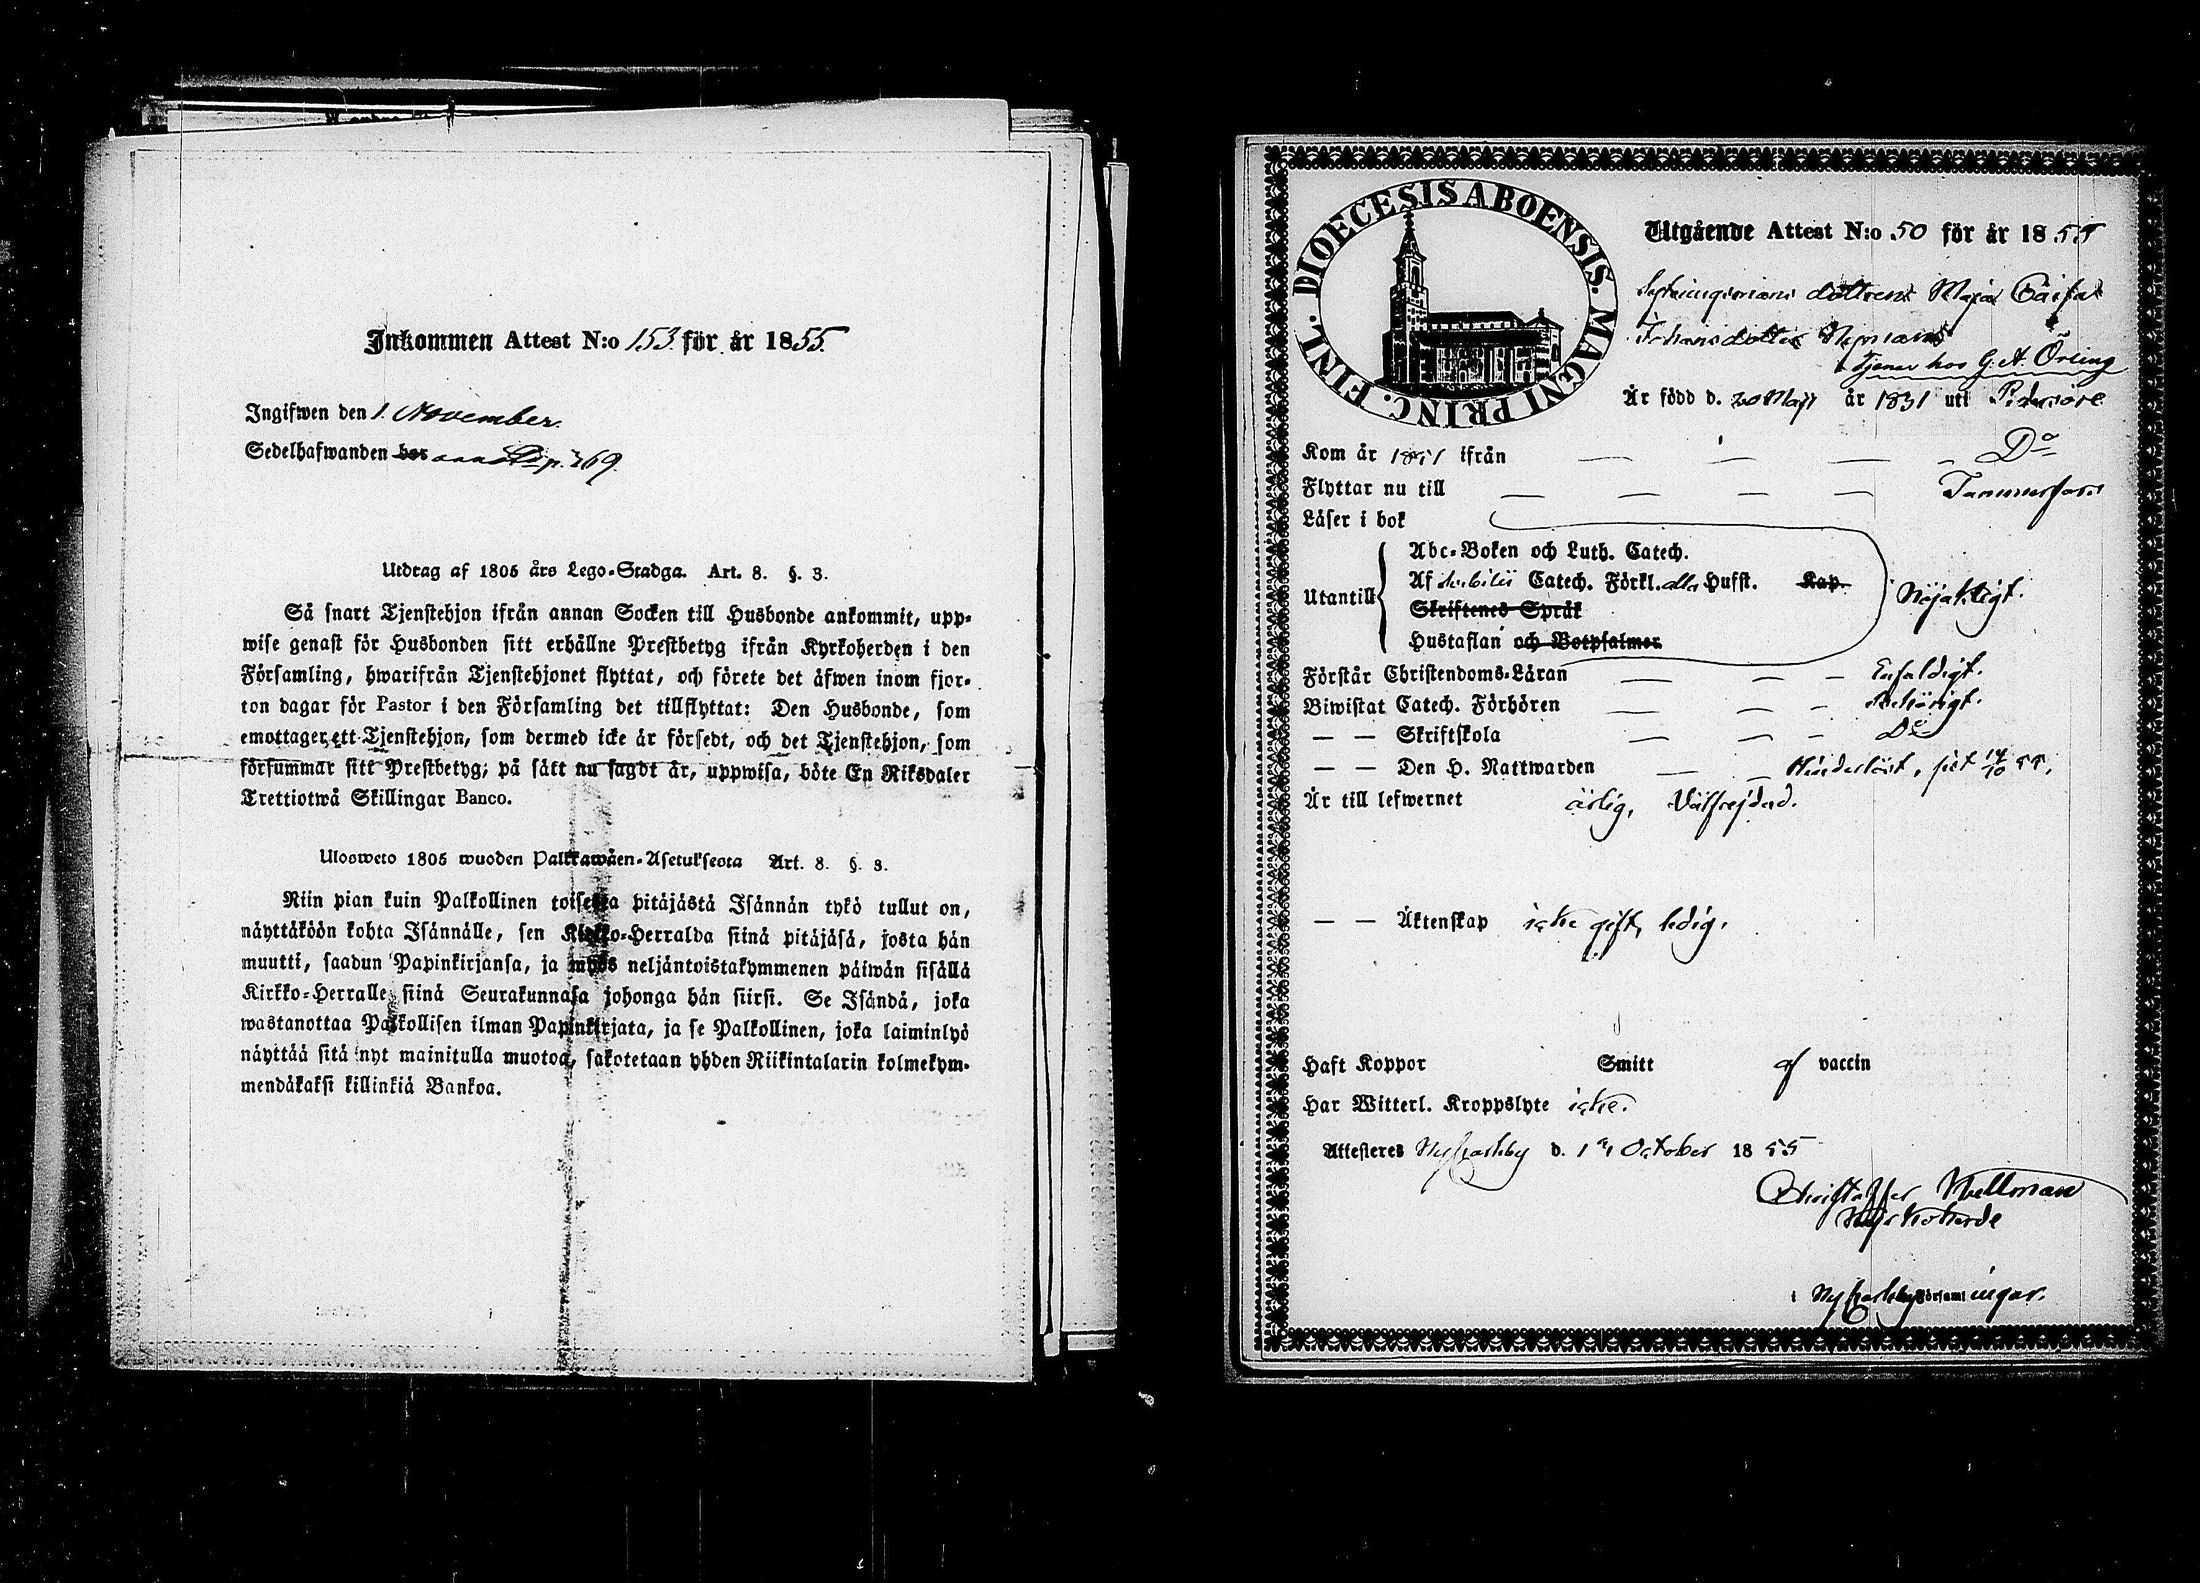 Inkommen Attest N:o 153 för år 1855.
Ingifwen den 1 November.
Sedelhafwanden bor p. 269.
Utdrag af 1805 års Lego-Stadga. Art. 8. §. 3.
Så snart Tjenstehjon ifrån annan Socken till Husbonde ankommit, upp-
wise genast för Husbonden sitt erhållne Prestbetyg ifrån Kyrkoherden i den
Församling, hwarifrån Tjenstehjonet flyttat, och förete det äfwen inom fjor-
ton dagar för Pastor i den Församling det tillflyttat: Den Husbonde, som
emottager ett Tjenstehjon, som dermed icke är försedt, och det Tjenstehjon, som
försummar sitt Prestbetyg, på sätt nu sagdt är, uppwisa, böte En Riksdaler
Trettiotwå Skillingar Banco.
Ulosweto 1805 wuoden Palkkawäen-Asetuksesta Art. 8. §. 3.
Niin pian kuin Palkollinen toisesta pitäjästä Isännän tykö tullut on,
näyttäköön kohta Isännälle, sen Kirkko-Herralda siinä pitäjäsä, josta hän
muutti, saadun Papinkirjansa, ja myös neljäntoistakymmenen päiwän sisällä
Kirkko-Herralle siinä Seurakunnasa johonga hän siirsi. Se Isändä, joka
wastanottaa Palkollisen ilman Papinkirjata, ja se Palkollinen, joka laiminlyö
näyttää sitä nyt mainitulla muotoa, sakotetaan yhden Riikintalarin kolmekym-
mendäkaksi killinkiä Bankoa.
DIOECESIS ABOENSIS. MAGNI PRINC. FINL.
Utgående Attest N:o 50 för år 1855
dottren Maja Caisa
Johansdotter Nyman
Tjenar hos G. A. Öring
Är född d. 20 Maji år 1831 uti Pedersöre
Kom år 1851 ifrån — — — - Do
Flyttar nu till — — — — Tammerfors
Läser i bok
Abc-Boken och Luth. Catech.
Utantill Af Svebilii Catech. Förkl. eller Husst. Kap.
Skriftenes Språk
Hustaflan och Botpsalmer
Nöjaktigt.
Förstår Christendoms-Läran — — - Enfaldigt.
Biwistat Catech. Förhören — — - Behörigt.
— — Skriftskola — — - Do
— — Den H. Nattwarden — — Hinderlöst, sist 14/10 55.
Är till lefwernet ärlig, Välfrejdad.
— — Äktenskap icke gift, ledig.
Haft Koppor Smitt af vaccin
Har Witterl. Kroppslyte icke.
Attesteras Nykarleby d. October 1855
Christoffer Hellman
Kyrkoherde
i Nykarleby Församlingar.